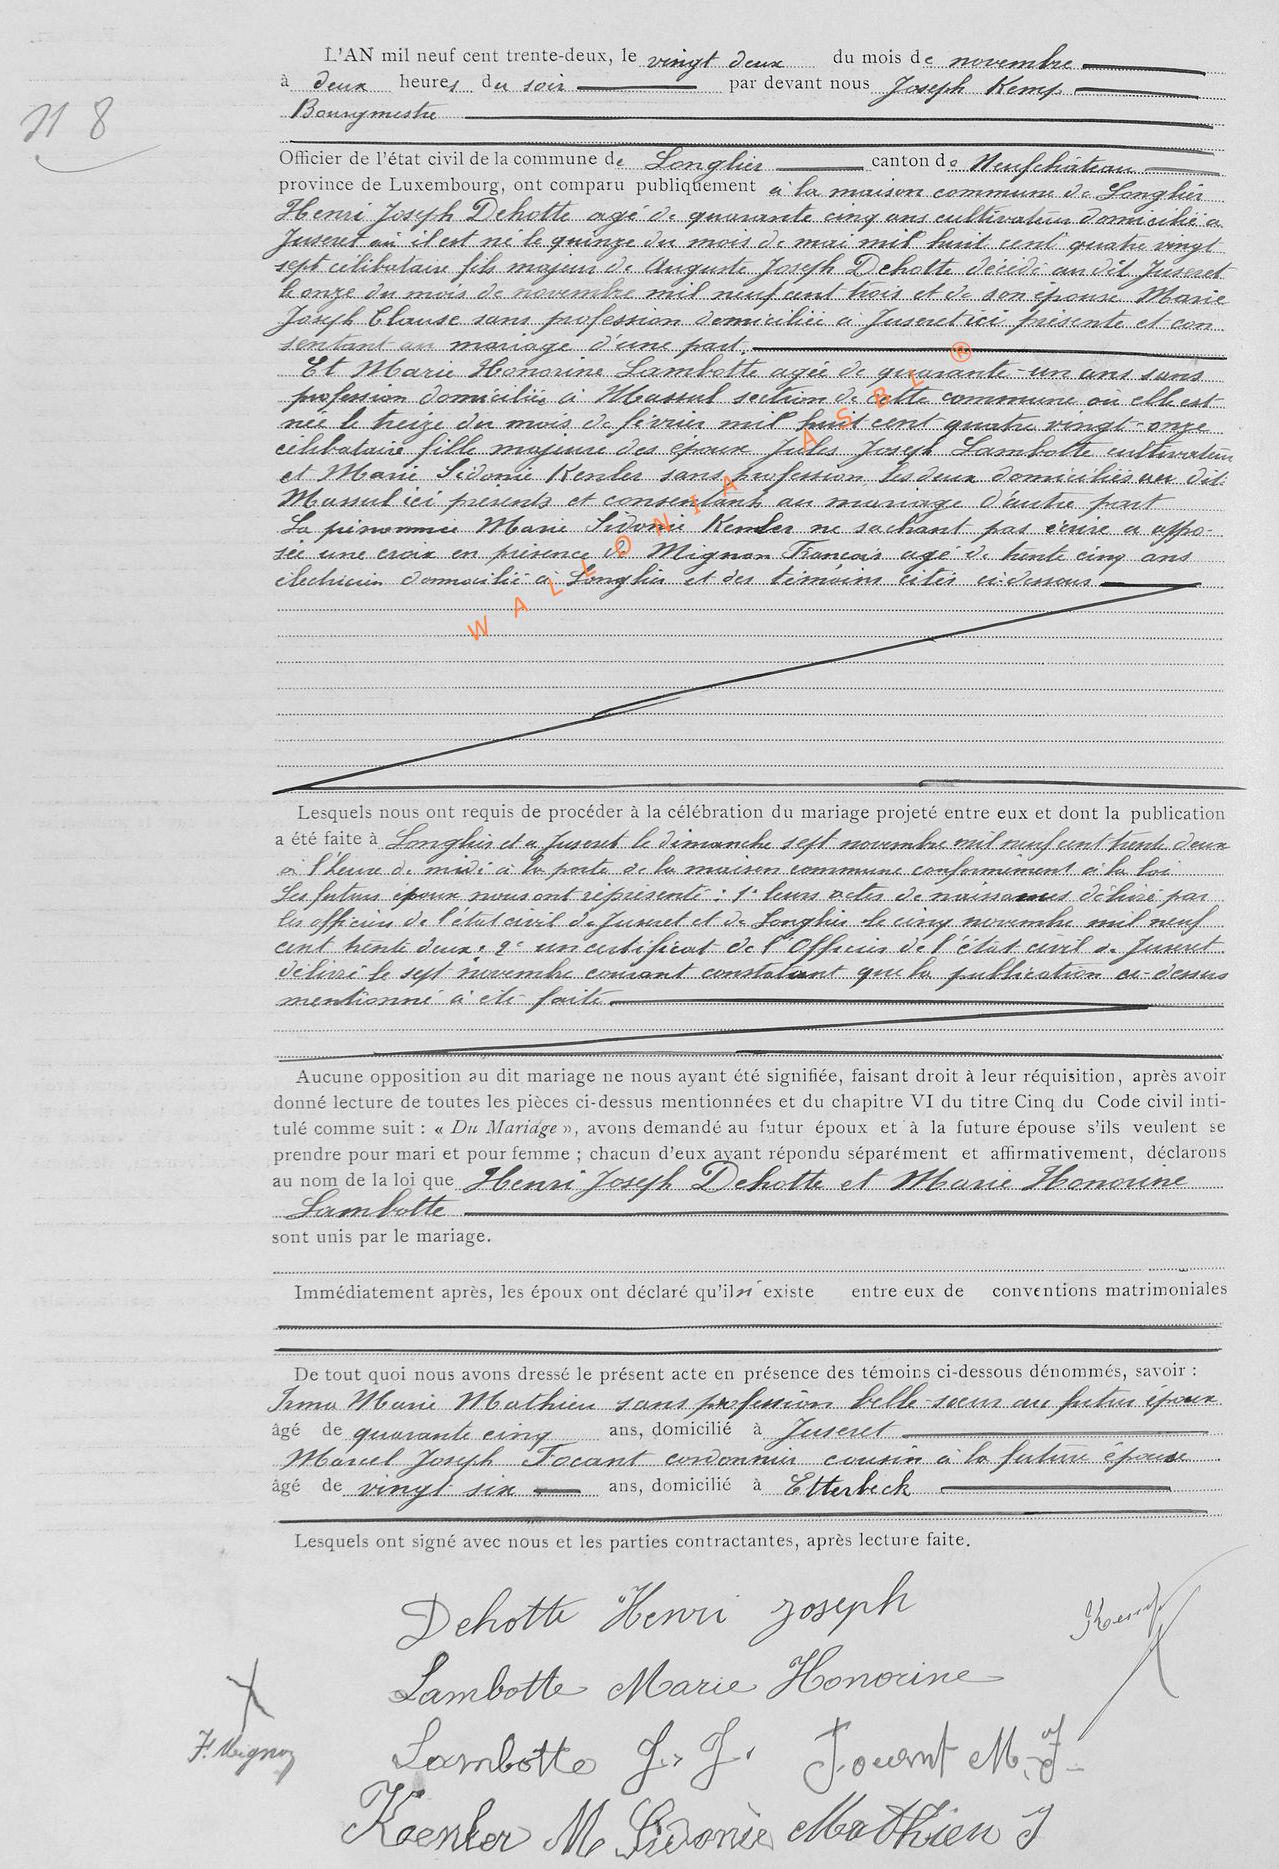 L'AN mil neuf cent trente-deux, le vingt deux du mois de novembre
à deux heures du soir par devant nous Joseph Kemp
Bourgmestre
N 8
Officier de l'état civil de la commune de Longlier canton de Neufchâteau
province de Luxembourg, ont comparu publiquement à la maison commune de Longlier
Henri Joseph Dehotte agé de quarante cinq ans cultivateur domicilié à
Juseret où il est né le quinze du mois de mai mil huit cent quatre vingt
sept célibataire fils majeur de Auguste Joseph Dehotte décédé au dit Juseret
le onze du mois de novembre mil neuf cent trois et de son épouse Marie
Joseph Clause sans profession domiciliée à Juseret ici présente et con
sentant au mariage d'une part.
Et Marie Honorine Lambotte agée de quarante-un ans sans
profession domiciliée à Massul section de cette commune où elle est
née le treize du mois de février mil huit cent quatre vingt-onze
célibataire fille majeure des époux Jules Joseph Lambotte cultivateur
et Marie Sidonie Kenler sans profession les deux domiciliés au dit
Massul ici présents et consentants au mariage d'autre part
La prénommée Marie Sidonie Kenler ne sachant pas écrire a appo-
sée une croix en présence de Mignon François agé de trente cinq ans
électricien domicilié à Longlier et des témoins cités ci dessous
WALLONIA ASBL ®
Lesquels nous ont requis de procéder à la célébration du mariage projeté entre eux et dont la publication
a été faite à Longlier et à Juseret le dimanche sept novembre mil neuf cent trente deux
à l'heure de midi à la porte de la maison commune conformément à la loi
Les futurs époux nous ont représenté : 1° leurs actes de naissances délivré par
les officiers de l'état civil de Juseret et de Longlier le cinq novembre mil neuf
cent trente deux ; 2° un certificat de l'Officier de l'état civil de Juseret
délivré le sept novembre courant constatant que la publication ci-dessus
mentionné à été faite
Aucune opposition au dit mariage ne nous ayant été signifiée, faisant droit à leur réquisition, après avoir
donné lecture de toutes les pièces ci-dessus mentionnées et du chapitre VI du titre Cinq du Code civil inti-
tulé comme suit : « Du Mariage », avons demandé au futur époux et à la future épouse s'ils veulent se
prendre pour mari et pour femme ; chacun d'eux ayant répondu séparément et affirmativement, déclarons
au nom de la loi que Henri Joseph Dehotte et Marie Honorine
Lambotte
sont unis par le mariage.
Immédiatement après, les époux ont déclaré qu'il n'existe entre eux de conventions matrimoniales
De tout quoi nous avons dressé le présent acte en présence des témoins ci-dessous dénommés, savoir :
Irma Marie Mathieu sans profession belle-sœur au futur époux
âgé de quarante cinq ans, domicilié à Juseret
Marcel Joseph Focant cordonnier cousin à la future épouse
âgé de vingt six ans, domicilié à Etterbeck
Lesquels ont signé avec nous et les parties contractantes, après lecture faite.
Dehotte Henri Joseph
Kemp
Lambotte Marie Honorine
F. Mignon
Lambotte J. J. Focant M. J
Koenler M Sidonie Mathieu I